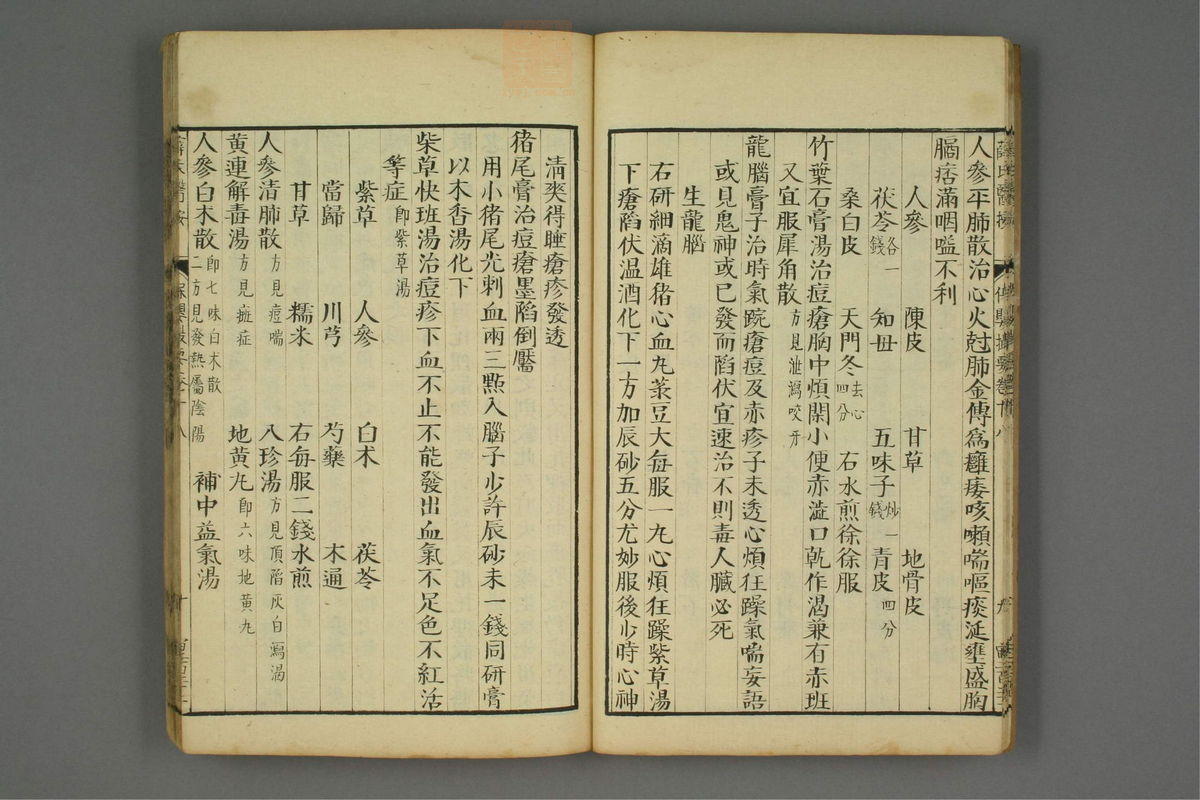 人參平肺散治心火尅肺金傳爲癰痿咳嗽喘嘔痰涎壅盛胸
膈痞滿咽嗌不利
人參 陳皮 甘草 地骨皮
茯苓各一錢 知母 五味子炒一錢 青皮四分
桑白皮 天門冬去心四分 右水煎徐徐服
竹葉石膏湯治痘瘡胸中煩悶小便赤澁口乾作渴兼有赤斑
又宜服犀角散方見泄瀉咬牙
龍腦膏子治時氣踠瘡痘及赤疹子未透心煩狂躁氣喘妄語
或見鬼神或已發而陷伏宜速治不則毒人臟必死
生龍腦
右研細滴雄猪心血丸菉豆大每服一丸心煩狂躁紫草湯
下瘡陷伏温酒化下一方加辰砂五分尤妙服後少時心神
清爽得睡瘡疹發透
猪尾膏治痘瘡墨陷倒靨
用小猪尾尖刺血兩三點入腦子少許辰砂末一錢同研膏
以木香湯化下
柴草快班湯治痘疹下血不止不能發出血氣不足色不紅活
等症卽紫草湯
紫草 人參 白术 茯苓
當歸 川芎 芍藥 木通
甘草 糯米 右每服二錢水煎
人參清肺散方見痘喘 八珍湯方見頂陷灰白瀉渴
黄連解毒湯方見癍症 地黄丸卽六味地黄丸
人參白术散卽七味白术散二方見發熱屬陰陽 補中益氣湯
薛氏醫按
十